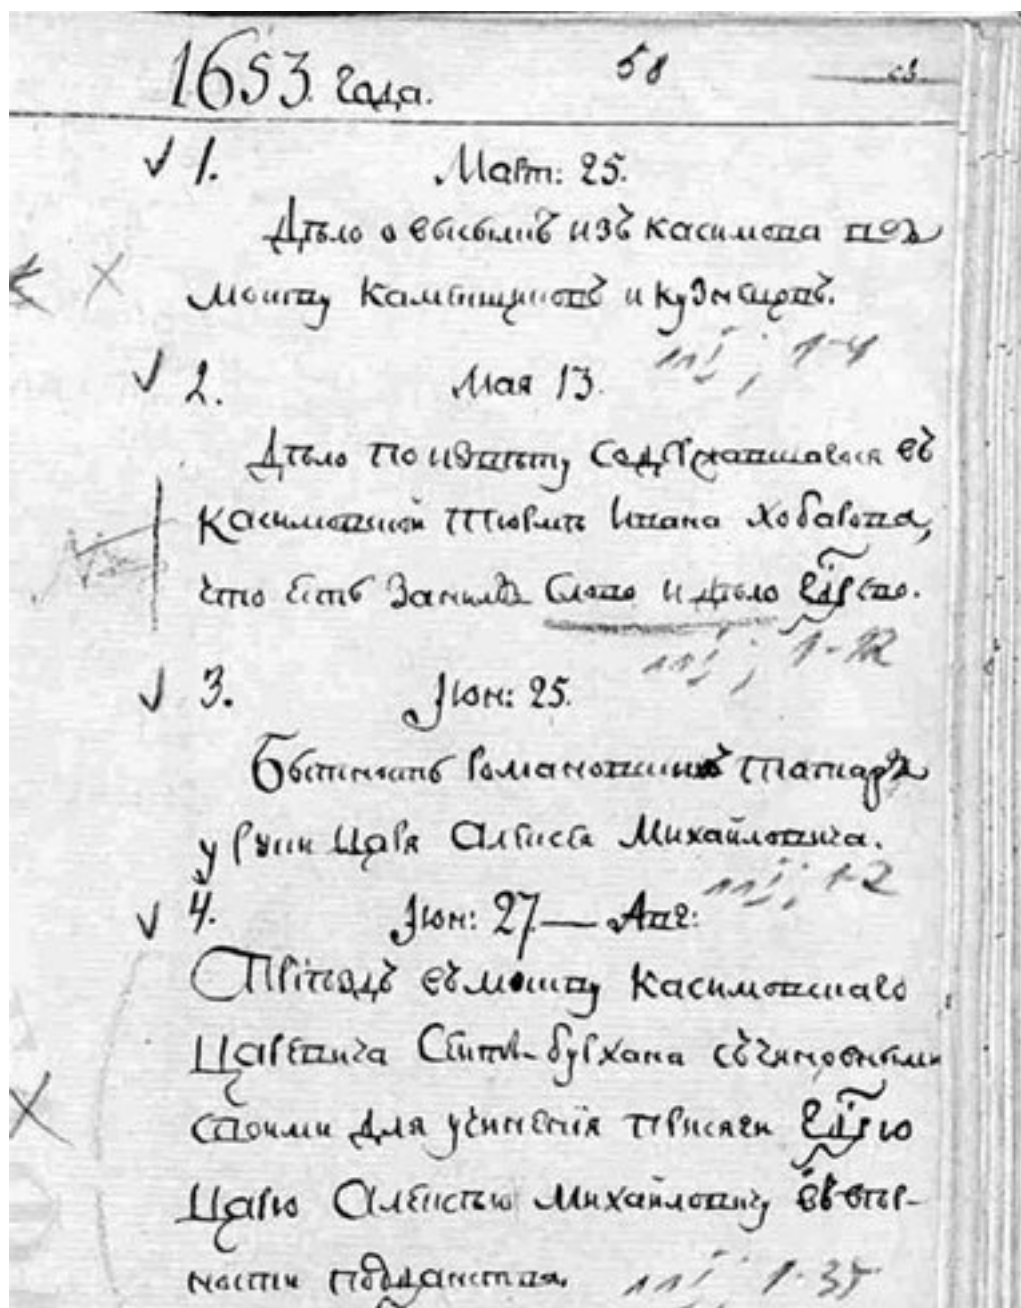 1653. Года.
58
1. Март: 25.
Дѣло о высылкѣ изъ Касимова въ
Москву каменщиковъ и кузнецовъ.
1-4
2. Мая 13.
Дѣло по извѣту содержавшагося въ
Касимовской тюрмѣ Ивана Хобарова,
что есть за нимъ Слово и дѣло Гдрево.
1-12
3. Іюн: 25.
Бытность Романовскихъ татаръ
у руки Царя Алексѣя Михайловича.
1-2
4. Іюн: 27 — Авг:
Пріѣздъ въ Москву Касимовскаго
Царевича Сеитъ-бурхана съ чиновными
своими для учиненія присяги Гдрю
Царю Алексѣю Михайловичу въ вѣр-
ности подданства.
1-35